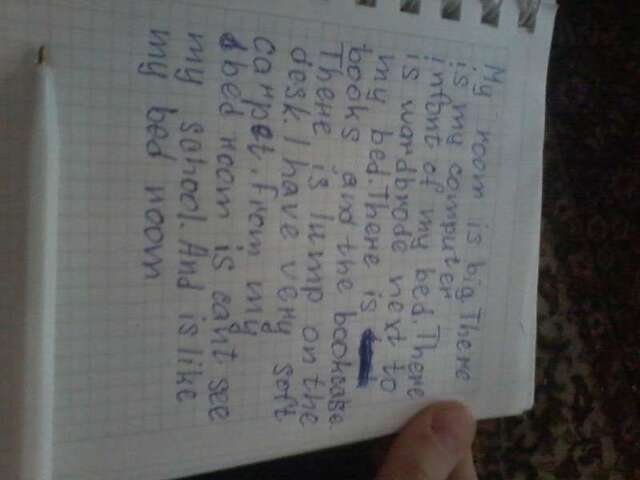 My room is big. There
is my computer
infront of my bed. There
is wardbrode next to
my bed. There is
books and the bookcase.
There is lump on the
desk. I have very soft
carpet. from my
bed room is can't see
my school. And is like
my bed room